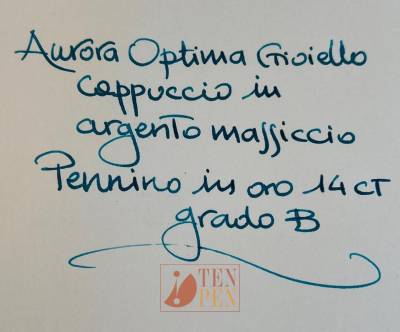 Aurora Optima Gioiello
Cappuccio in
argento massiccio
Pennino in oro 14 CT
grado B
TEN
PEN